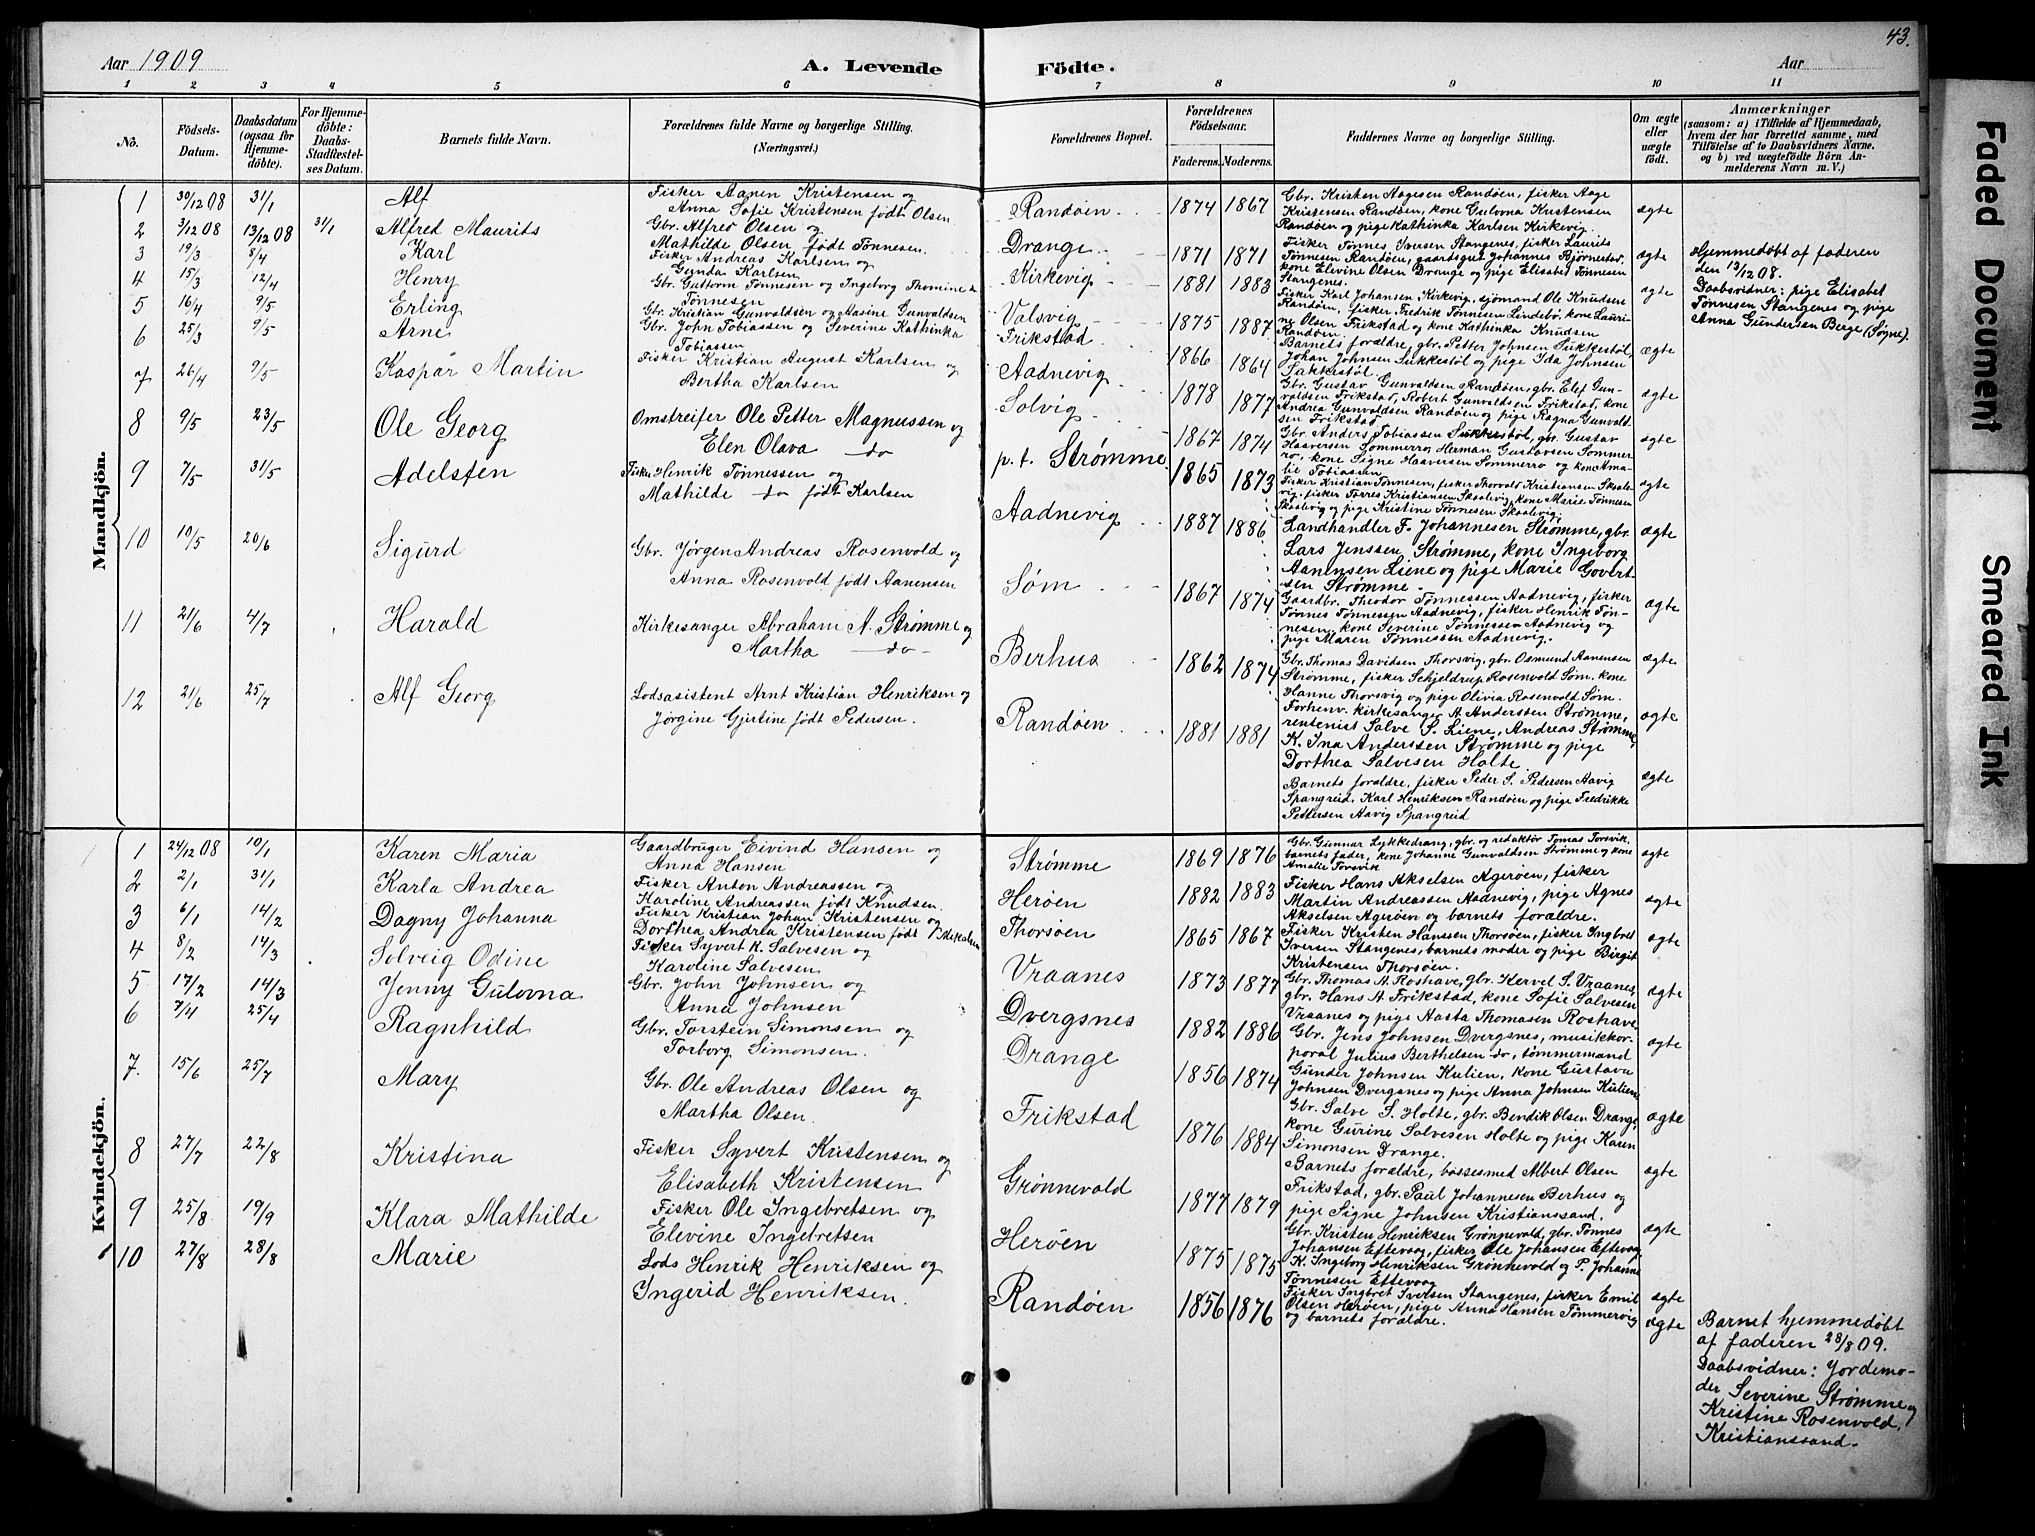 43.
Aar 1909
A. Levende Födte.
Aar
1 2 3 4 5 6 7 8 9 10 11
No.
Födsels-Datum.
Daabsdatum (ogsaa for Hjemmedöbte).
For Hjemmedöbte: Daabs-Stadfæstelses Datum.
Barnets fulde Navn.
Forældrenes fulde Navne og borgerlige Stilling.
(Næringsvei.)
Forældrenes Bopæl.
Forældrenes Födselsaar.
Faderens. Moderens.
Faddernes Navne og borgerlige Stilling.
Om ægte eller uægte födt.
Anmærkninger
(saasom: a) i Tilfælde af Hjemmedaab,
hvem der har forrettet samme, med
Tilföielse af to Daabsvidners Navne.
og b) ved uægtefödte Börn Anmelderens Navn m. V.)
Mandkjön.
1 30/12 08 31/1 Alf
Fisker Aanen Kristensen og
Anna Sofie Kristensen født Olsen
Randøen 1874 1867
Gbr. Kristen Aagesen Randøen, fisker Aage
Kristensen Randøen, kone Gulovna Kristensen
Randøen og pige Kathinka Karlsen Kirkevig.
ægte
2 3/12 08 13/12 08 31/1 Alfred Maurits
Gbr. Alfred Olsen og
Mathilde Olsen født Tønnesen.
Drange 1871 1871
Fisker Tønnes Iversen Stangenes, fisker Laurits
Tønnesen Randøen, gaardsgut Johannes Bjørnestad,
kone Elevine Olsen Drange og pige Elisabet Tønnesen
Stangenes.
ægte
Hjemmedøbt af faderen
den 13/12 08.
Daabsvidner: pige Elisabet
Tønnesen Stangenes og pige
Anna Gundersen Berge (Søgne).
3 19/3 8/4 Karl
Fisker Andreas Karlsen og
Gunda Karlsen
Kirkevig 1881 1883
Fisker Karl Johansen Kirkevig, sjømand Ole Knudsen
Randøen, fisker Fredrik Tønnesen Lindebø, kone Lauri-
ne Olsen Frikstad og kone Kathinka Knudsen
Randøen
ægte
4 15/3 12/4 Henry
Gbr. Guttorm Tønnesen og Ingeborg Thomine
Tønnesen
Valsvig 1875 1887
Barnets forældre, gbr. Petter Johnsen Sukkestøl,
Johan Johnsen Sukkestøl og pige Ida Johnsen
Sukkestøl.
ægte
5 16/4 9/5 Erling
Gbr. Kristian Gunvaldsen og Aasine Gunvaldsen
Frikstad 1866 1864
Gbr. Gustav Gunvaldsen Randøen, gbr. Elef Gun-
valdsen Frikstad, Robert Gunvaldsen Frikstad, kone
Andrea Gunvaldsen Randøen og pige Ragna Gunvald-
sen Frikstad
ægte
6 25/3 9/5 Arne
Gbr. John Tobiassen og Severine Kathinka
Tobiassen
Aadnevig 1878 1877
Gbr. Anders Tobiassen Sukkestøl, gbr. Gustav
Haaversen Sommerro, Herman Gustavsen Sommer-
ro, kone Signe Haaversen Sommerro og kone Ama-
lie Tobiassen
ægte
7 26/4 9/5 Kaspar Martin
Fisker Kristian August Karlsen og
Bertha Karlsen
Solvig 1867 1874
Fisker Kristian Tønnesen, fisker Thorvald Kristiansen Skaale-
vig, fisker Torres Kristiansen Skaalevig, kone Marie Tønnesen
Skaalevig og pige Kristine Tønnesen Skaalevig.
ægte
8 9/5 23/5 Ole Georg
Omstreifer Ole Petter Magnussen og
Elen Olava do
p. t. Strømme 1865 1873
Landhandler F. Johannesen Strømme, gbr.
Lars Jenssen Strømme, kone Ingeborg
Aanensen Liene og pige Marie Govert-
sen Strømme.
ægte
9 7/5 31/5 Adelsten
Fisker Henrik Tønnessen og
Mathilde do født Karlsen
Aadnevig 1887 1886
Gaardbr. Theodor Tønnessen Aadnevig, fisker
Tønnes Tønnessen Aadnevig, fisker Henrik Tøn-
nesen, kone Severine Tønnessen Aadnevig og
pige Maren Tønnessen Aadnevig.
ægte
10 10/5 20/6 Sigurd
Gbr. Jørgen Andreas Rosenvold og
Anna Rosenvold født Aanensen
Søm 1867 1874
Gbr. Thomas Davidsen Thorsvig, gbr. Osmund Aanensen
Strømme, fisker Schjeldrup Rosenvold Søm, kone
Hanne Thorsvig og pige Olivia Rosenvold Søm.
ægte
11 21/6 4/7 Harald
Kirkesanger Abraham A. Strømme og
Martha do
Berhus 1862 1874
Forhenv. kirkesanger A. Anderssen Strømme,
rentenist Salve S. Liene, Andreas Strømme,
K. Ina Anderssen Strømme og pige
Dorthea Salvesen Holte
ægte
12 21/6 25/7 Alf Georg
Lodsasistent Arnt Kristian Henriksen og
Jørgine Gjertine født Pedersen.
Randøen 1881 1881
Barnets forældre, fisker Peder S. Pedersen Aavig
Spangreid, Karl Henriksen Randøen og pige Fredrikke
Pettersen Aavig Spangreid
ægte
Kvindekjön.
1 24/12 08 10/1 Karen Maria
Gaardbruger Eivind Hansen og
Anna Hansen
Strømme 1869 1876
Gbr. Gunnar Lykkedrang, gbr. og redaktør Tomas Torsvik,
barnets fader, kone Johanne Gunvaldsen Strømme og kone
Amalie Torsvik
ægte
2 2/1 31/1 Karla Andrea
Fisker Anton Andreassen og
Karoline Andreassen født Knudsen.
Herøen 1882 1883
Fisker Hans Akselsen Agerøen, fisker
Martin Andreassen Aadnevig, pige Agnes
Akselsen Agerøen og barnets forældre.
ægte
3 6/1 14/2 Dagny Johanna
Fisker Kristian Johan Kristensen og
Dorthea Andrea Kristensen født Mikkelsen
Thorsøen 1865 1867
Fisker Kristen Hanssen Thorsøen, fisker Ingbret
Iversen Stangenes, barnets moder og pige Birgit
Kristensen Thorsøen.
ægte
4 8/2 14/3 Solveig Odine
Fisker Syvert K. Salvesen og
Karoline Salvesen
Vraanes 1873 1877
Gbr. Thomas A. Roshave, gbr. Kervel S. Vraanes,
gbr. Hans A. Frikstad, kone Sofie Salvesen
Vraanes og pige Aasta Thomasen Roshave
ægte
5 17/2 14/3 Jenny Gulovna
Gbr. John Johnsen og
Anna Johnsen
Dvergsnes 1882 1886
Gbr. Jens Johnsen Dvergsnes, musikkor-
poral Julius Berthelsen do, tømmermand
Gunder Johnsen Kulien, kone Gustava
Johnsen Dvergsnes og pige Anna Johnsen Kulien
ægte
6 7/4 25/4 Ragnhild
Gbr. Torstein Simonsen og
Torborg Simonsen.
Drange 1856 1874
Gbr. Salve S. Holte, gbr. Bendik Olsen Drange,
kone Gurine Salvesen Holte og pige Karen
Simonsen Drange.
ægte
7. 15/6 25/7 Mary
Gbr. Ole Andreas Olsen og
Martha Olsen.
Frikstad 1876 1884
Barnets forældre, bøssesmed Albert Olsen
Frikstad, gbr. Paul Johannesen Berhus og
pige Signe Johnsen Kristianssand.
ægte
8 27/7 22/8 Kristina
Fisker Syvert Kristensen og
Elisabeth Kristensen
Grønnevold 1877 1879
Gbr. Kristen Henriksen Grønnevold, gbr. Tønnes
Johansen Eftevaag, fisker Ole Johansen Eftevaag
K. Ingeborg Henriksen Grønnevold og P. Johanne
Tønnesen Eftevaag
ægte
9 25/8 19/9 Klara Mathilde
Fisker Ole Ingebretsen og
Elevine Ingebretsen
Herøen 1875 1875
Fisker Ingbret Iversen Stangenes, fisker Emil
Olsen Herøen, pige Anna Hansen Tømmervig
og barnets forældre.
ægte
10 27/8 28/8 Marie
Lods Henrik Henriksen og
Ingerid Henriksen.
Randøen 1856 1876
ægte
Barnet hjemmedøbt
af faderen 28/8 09.
Daabsvidner: Jordemo-
der Severine Strømme og
Kristine Rosenvold,
Kristianssand.
Faded Document
Smeared Ink